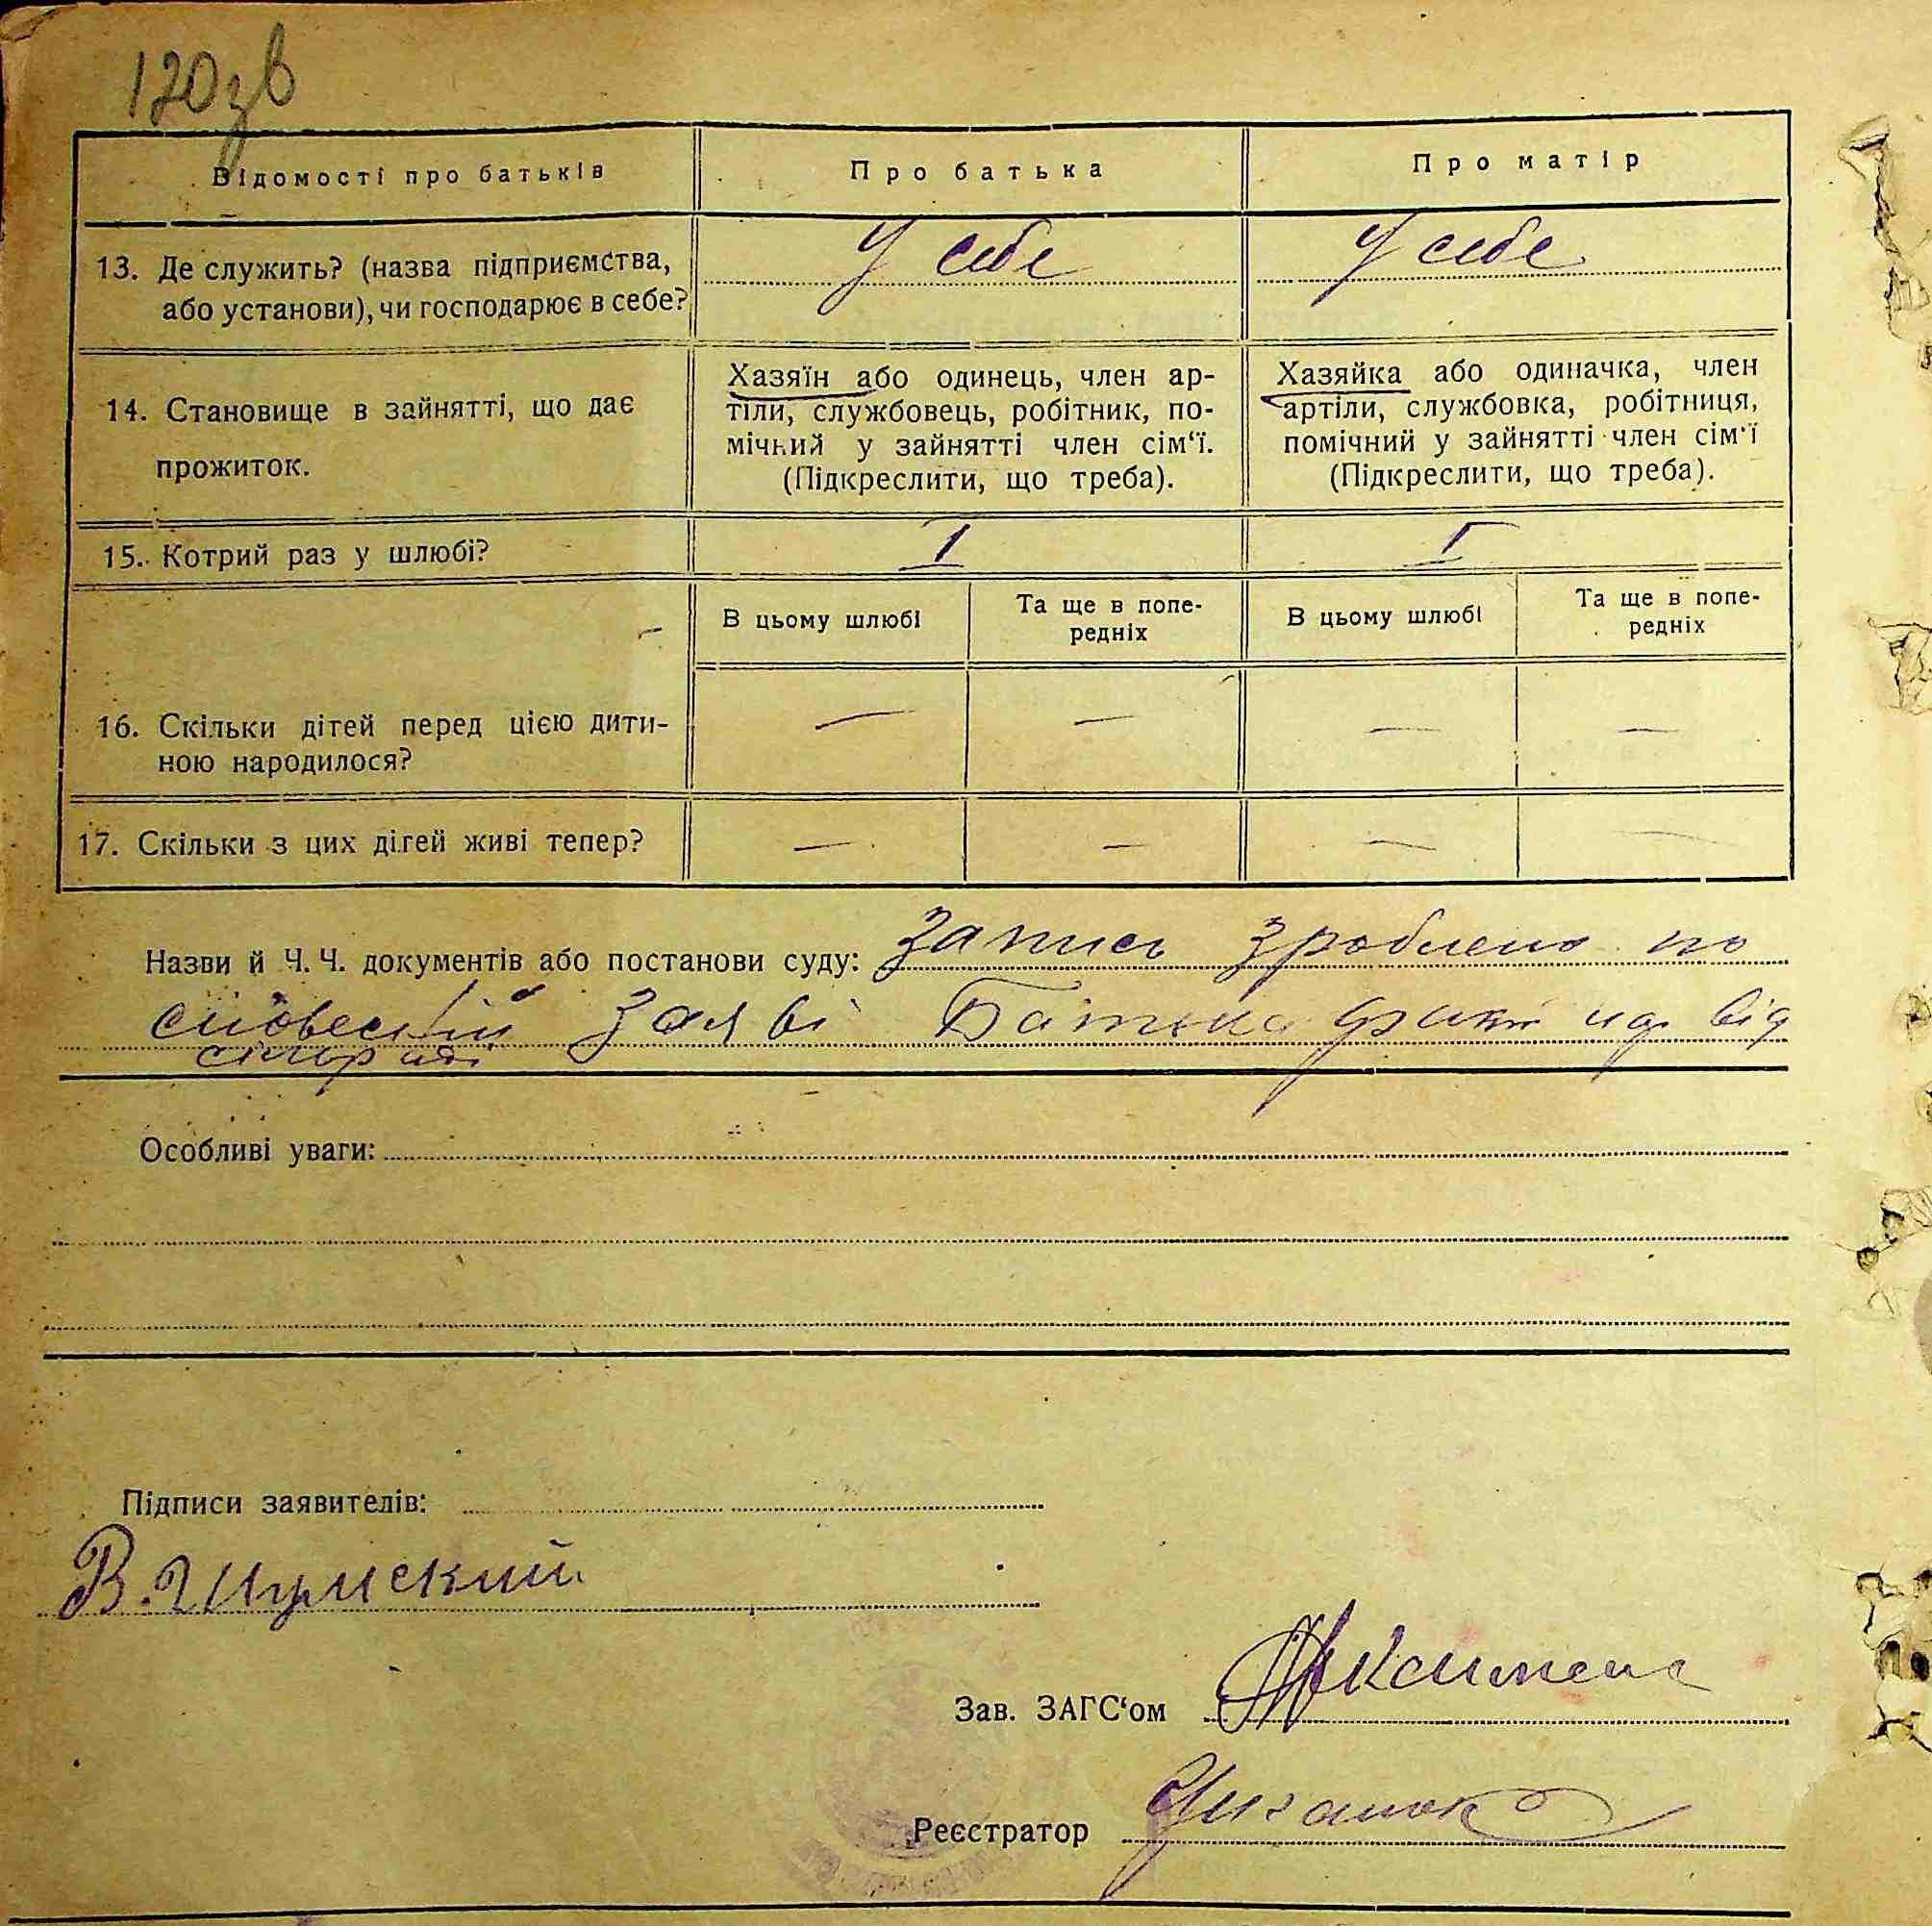 120зв
Відомості про батьків
Про батька
Про матір
13. Де служить? (назва підприємства,
або установи), чи господарює в себе?
У себе
У себе
14. Становище в зайнятті, що дає
прожиток.
Хазяїн або одинець, член ар-
тіли, службовець, робітник, по-
мічний у зайнятті член сім‘ї.
(Підкреслити, що треба).
Хазяйка або одиначка, член
артіли, службовка, робітниця,
помічний у зайнятті член сім‘ї
(Підкреслити, що треба).
15. Котрий раз у шлюбі?
I
I
В цьому шлюбі
Та ще в попе-
редніх
В цьому шлюбі
Та ще в попе-
редніх
16. Скільки дітей перед цією дити-
ною народилося?
— — — —
17. Скільки з цих дітей живі тепер?
— — — —
Назви й Ч. Ч. документів або постанови суду: Запись зроблено по
словесній заяві Батька від
Особливі уваги:
Підписи заявителів:
В. Шумский
Зав. ЗАГС‘ом
Реєстратор